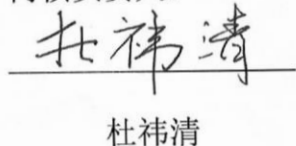 杜祎清
杜祎清